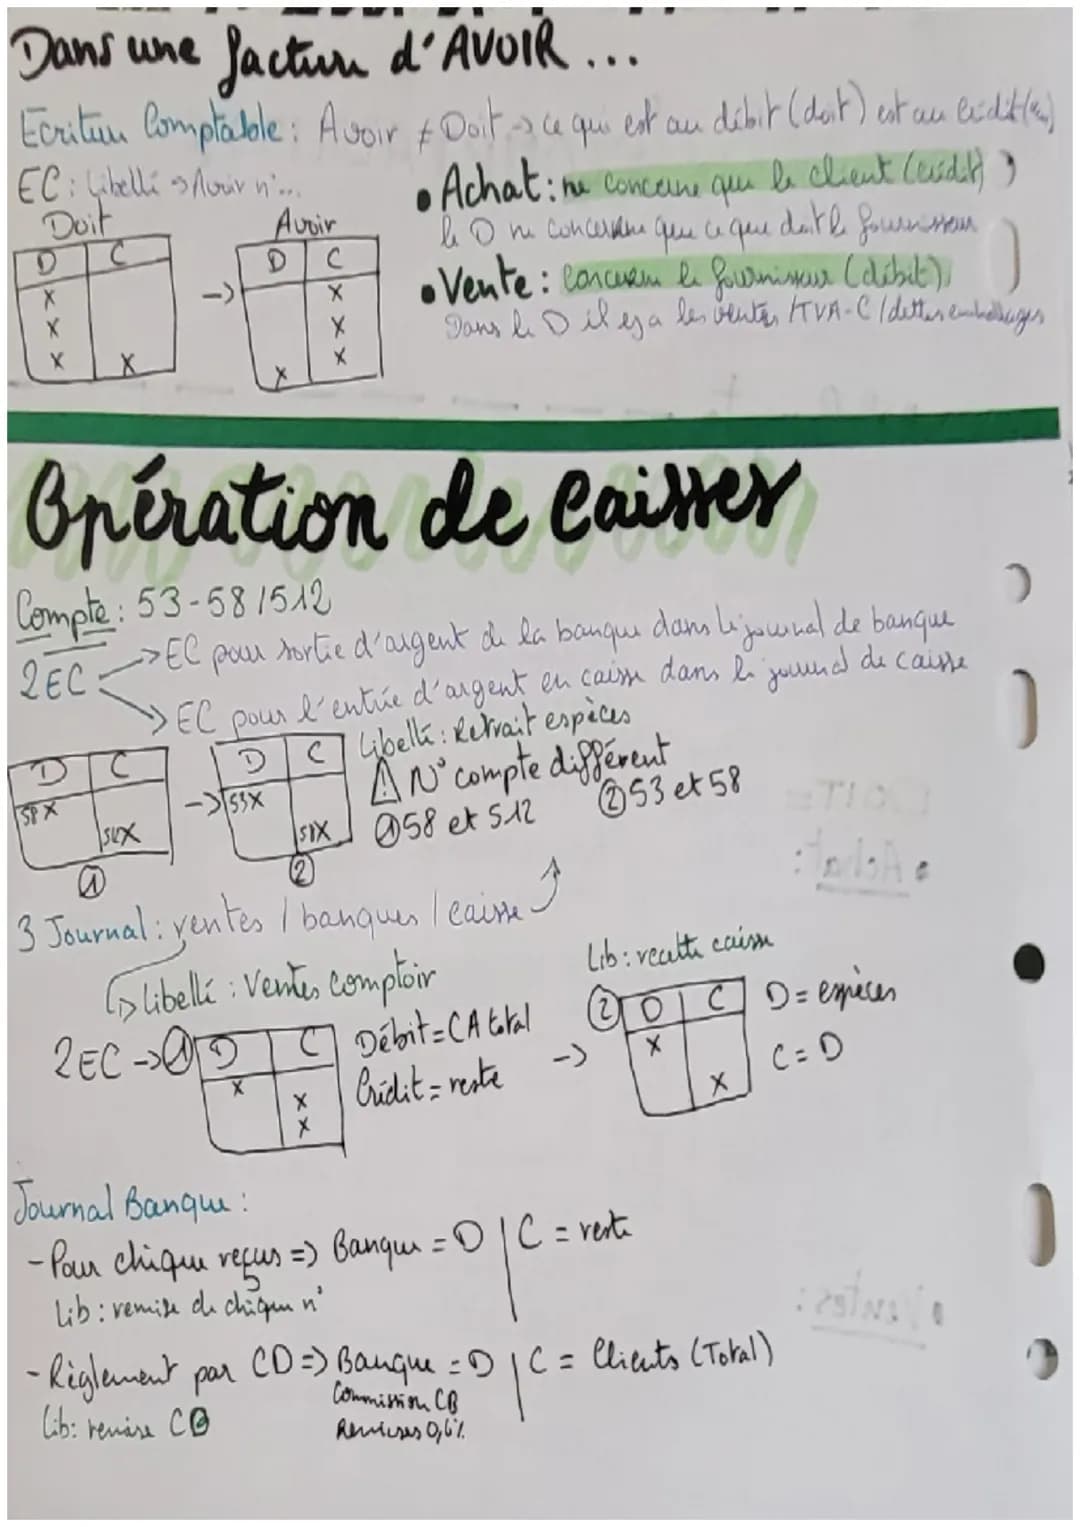 Dans une facture d'AVOIR ...
Ecriture Comptable : Avoir ≠ Doit → ce qui est au débit (doit) est au crédit
EC : Libellé → Avoir n°...
• Achat : ne concerne que le client (crédit)
le D ne concerne que ce que doit le fournisseur
• Vente : Concerne le fournisseur (débit)
Dans le D il y a les ventes / TVA-C / dettes emballages
Doit
Avoir
D C
D C
X
X
X X
→
X
X
X X
Opération de Caisses
Compte : 53-58/512
2EC
→ EC pour sortie d'argent de la banque dans le journal de banque
→ EC pour l'entrée d'argent en caisse dans le journal de caisse
Libellé : Retrait espèces
⚠ N° compte différent
① 58 et 512 ② 53 et 58
D C
58 X
512X
①
→
D C
53X
58X
②
3 Journal : ventes / banques / caisse
↳ Libellé : Ventes comptoir
2EC → ①
D C
X
X
X
Débit = CA total
Crédit = reste
→
Lib : recette caisse
②
D C
X
X
D = espèces
C = D
Journal Banque :
- Pour chèque reçus => Banque = D | C = reste
Lib : remise de chèque n°
- Règlement par CD => Banque = D | C = Clients (Total)
Commission CB
Remises 0,6%
Lib : remise CB
DOIT =
• Achat :
• Ventes :